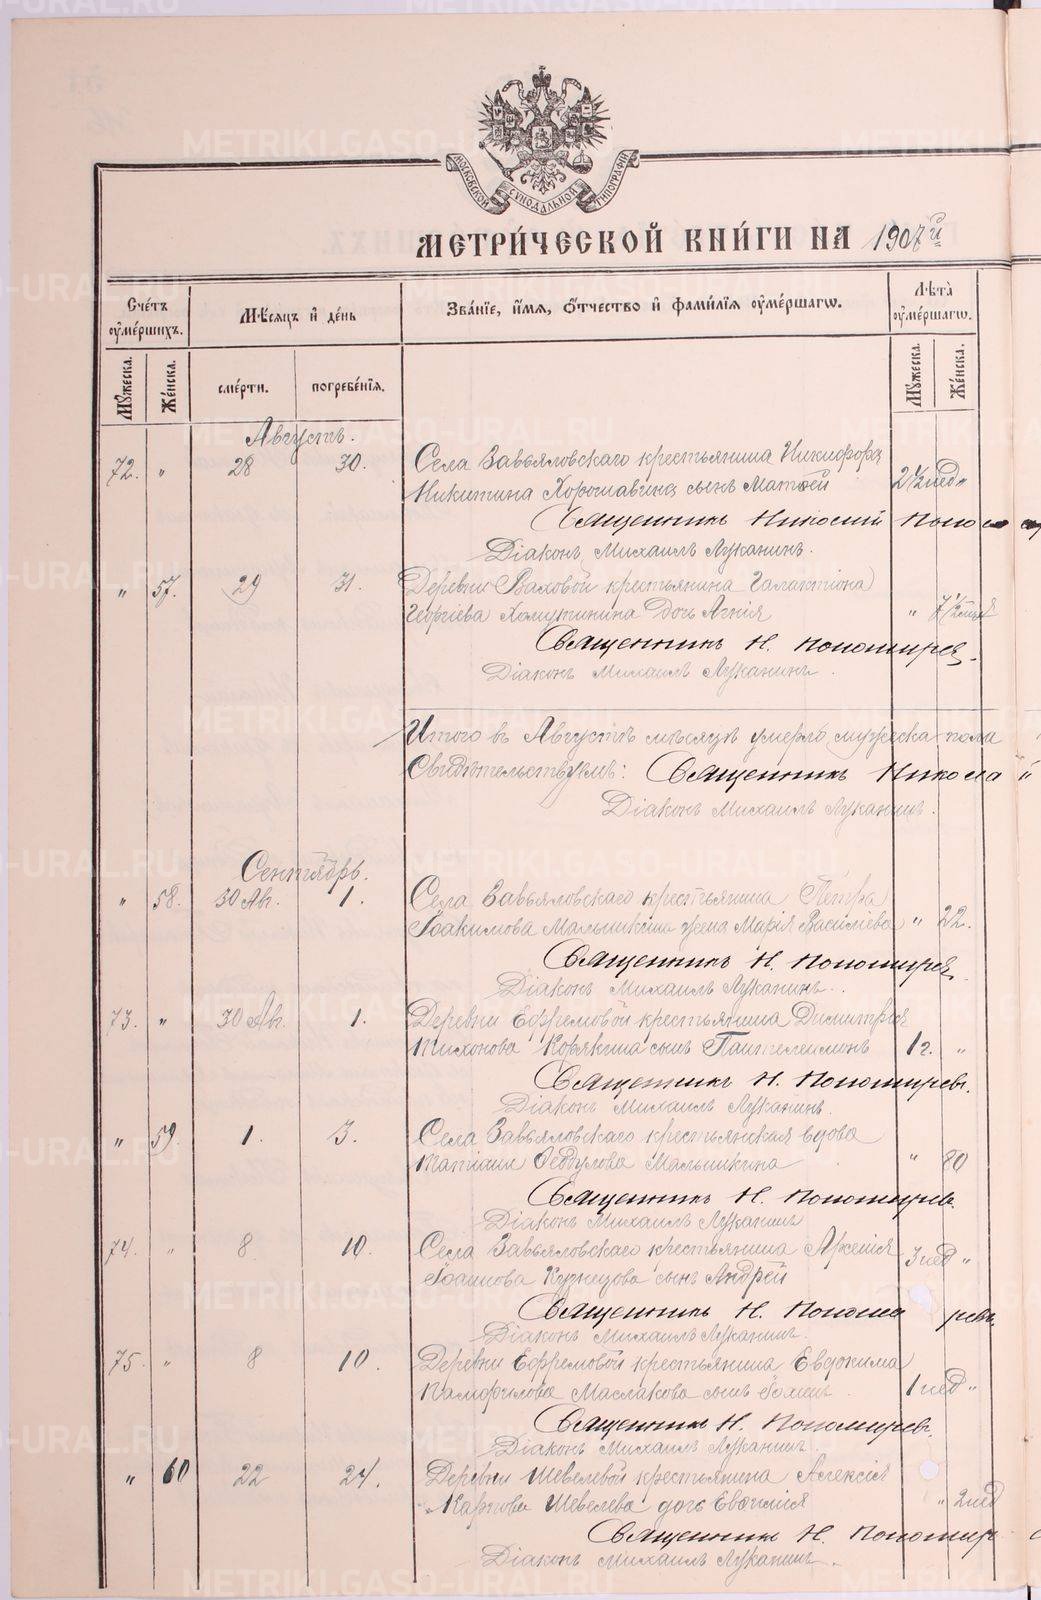 МОСКОВСКОЙ СѴНОДАЛЬНОЙ ТИПОГРАФІИ
МЕТРИ́ЧЕСКОЙ КНИ́ГИ НА 1907 й
Сче́тъ ᲂумершихъ.
Мѣсяцъ и де́нь
Зва́ніе, и́мя, ѻ҆́тчество и фами́лія ᲂуме́ршагѡ.
Лѣта̀ ᲂуме́ршагѡ.
Мꙋ́жеска.
Же́нска.
сме́рти.
погребе́нія.
Мꙋ́жеска.
Же́нска.
Августъ.
72. " 28 30. Села Завьяловскаго крестьянина Никифора
Никитина Хорошавина сынъ Матѳей 2 1/2 нед "
Священникъ Николай Поно
Діаконъ Михаилъ Луканинъ.
" 57. 29 31. Деревни Ваховой крестьянина Галактіона
Георгіева Хомутинина дочь Агнія " 7 1/2
Священникъ Н. Пономаревъ.
Діаконъ Михаилъ Луканинъ.
Итого въ Августѣ мѣсяцѣ умерло мужеска пола
Свидѣтельствуемъ: Священникъ Никола й
Діаконъ Михаилъ Луканинъ.
Сентябрь.
" 58. 30 Авг. 1. Села Завьяловскаго крестьянина Петра
Іоакимова Малышкина жена Марія Васильева " 22.
Священникъ Н. Пономаревъ.
Діаконъ Михаилъ Луканинъ.
73. " 30 Авг. 1. Деревни Ефремовой крестьянина Димитрія
Тихонова Корякина сынъ Пантелеимонъ 1 г. "
Священникъ Н. Пономаревъ.
Діаконъ Михаилъ Луканинъ.
" 59. 1. 3. Села Завьяловскаго крестьянская вдова
Татіана Ѳедулова Малышкина " 80
Священникъ Н. Пономаревъ.
Діаконъ Михаилъ Луканинъ
74. " 8 10. Села Завьяловскаго крестьянина Арсенія
Іоаннова Кузнецова сынъ Андрей 3 нед "
Священникъ Н. Понома ревъ
Діаконъ Михаилъ Луканинъ.
75. " 8 10. Деревни Ефремовой крестьянина Евдокима
Памфилова Маслакова сынъ Іоаннъ. 1 нед "
Священникъ Н. Пономаревъ.
Діаконъ Михаилъ Луканинъ.
" 60 22 24. Деревни Шевелевой крестьянина Алексія
Карпова Шевелева дочь Евѳимія " 2 нед
Священникъ Н. Пономар
Діаконъ Михаилъ Луканинъ.
METRIKI.GASO-URAL.RU